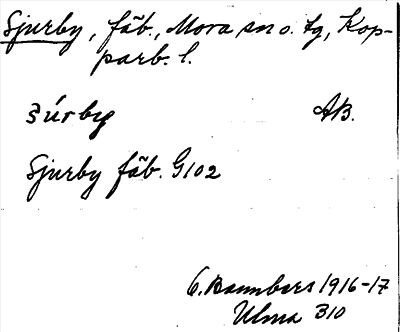 Sjurby, fäb., Mora sn o. tg, Kop-
parb. l.
šúrby AB.
Sjurby fäb. G102
C. Bannbers 1916-17
Ulma 310